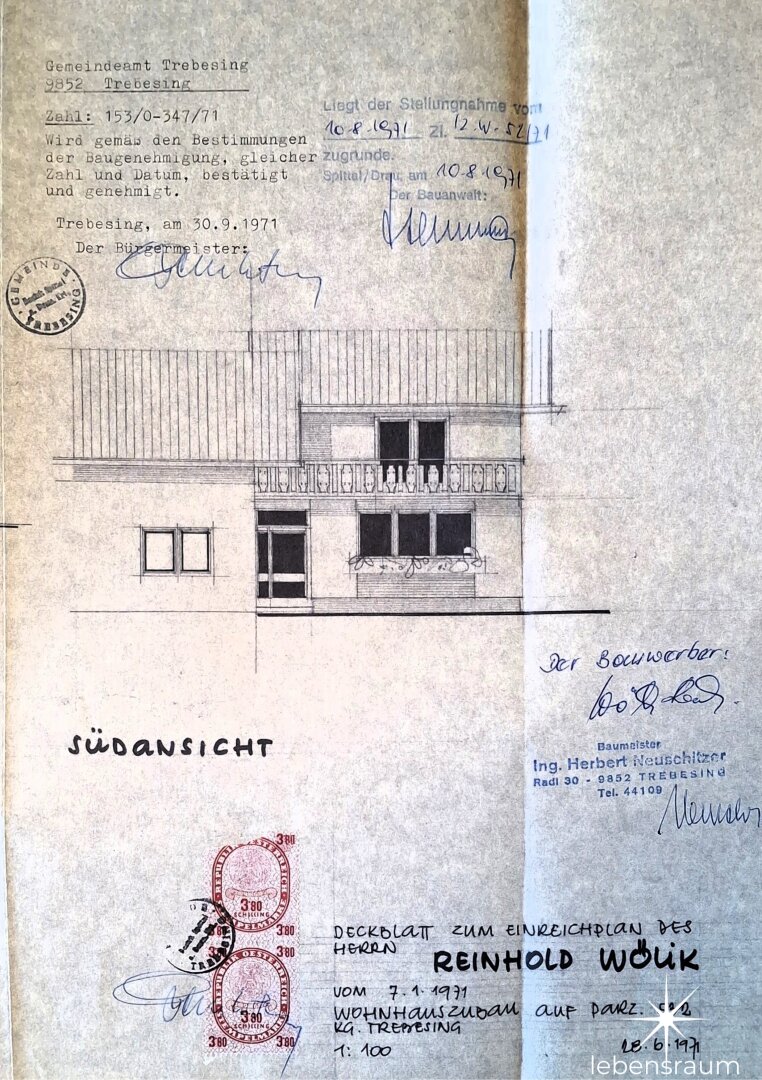 Gemeindeamt Trebesing
9852 Trebesing
Zahl: 153/0-347/71
Wird gemäß den Bestimmungen
der Baugenehmigung, gleicher
Zahl und Datum, bestätigt
und genehmigt.
Trebesing, am 30.9.1971
Der Bürgermeister:
Liegt der Stellungnahme vom
10.8.1971 Zl. 12-W-52/71
zugrunde.
Spittal/Drau, am 10.8.1971
Der Bauanwalt:
GEMEINDE
TREBESING
SÜDANSICHT
Der Bauwerber:
Baumeister
Ing. Herbert Neuschitzer
Radl 30 - 9852 TREBESING
Tel. 44109
380
REPUBLIK OESTERREICH
STEMPELMARKE
380
SCHILLING
380
380
380
380
REPUBLIK OESTERREICH
STEMPELMARKE
380
SCHILLING
380
380
TREBESING
DECKBLATT ZUM EINREICHPLAN DES
HERRN REINHOLD WÖLIK
VOM 7.1.1971
WOHNHAUSZUBAU AUF PARZ.
KG. TREBESING
1:100
28.6.1971
lebensraum